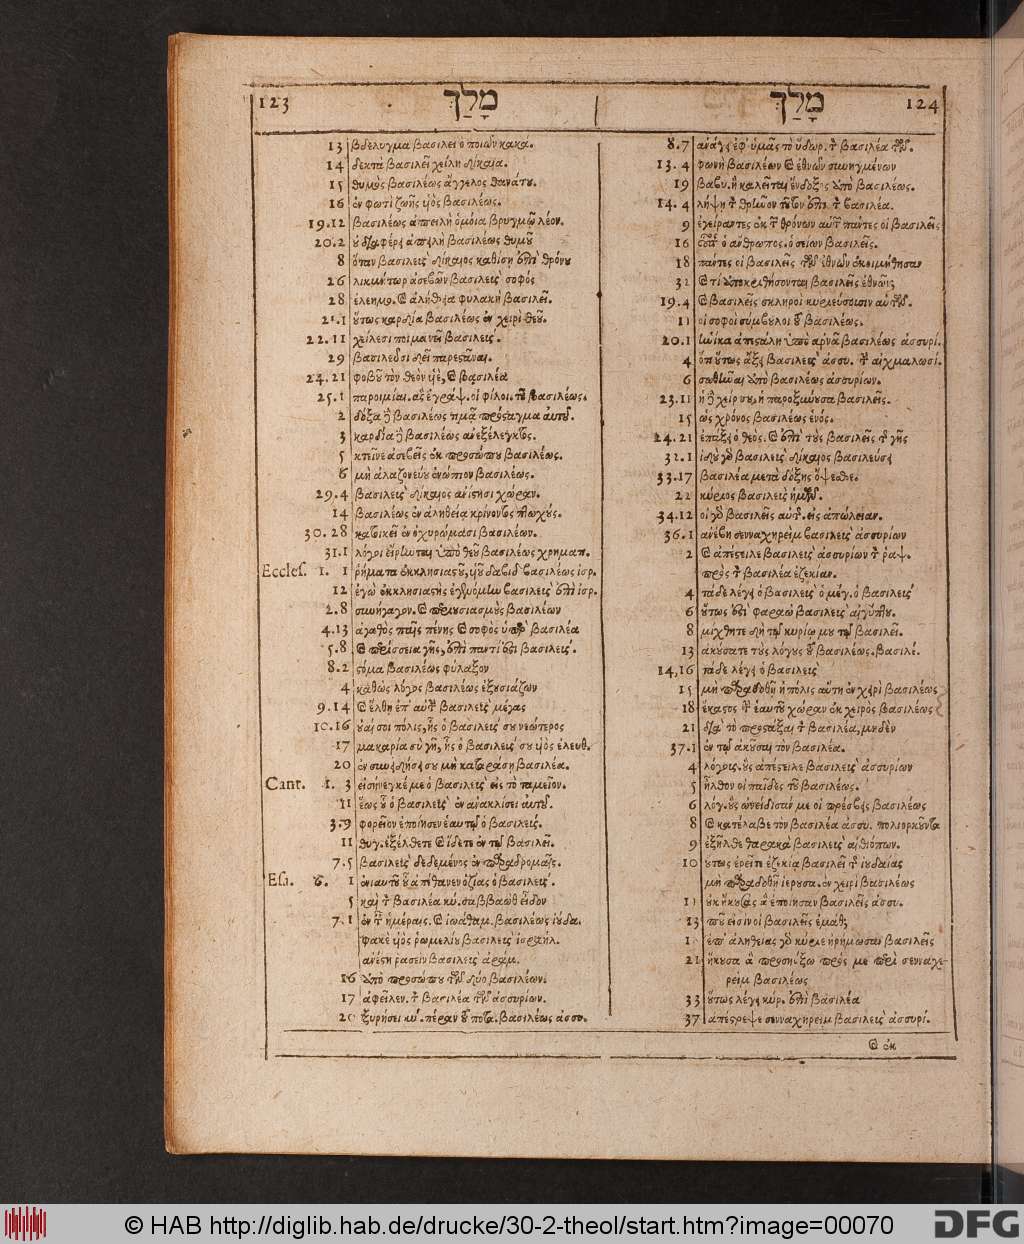 123 מָלַךְ
מָלַךְ 124
13 βδέλυγμα βασιλεῖ ὁ ποιῶν κακά.
14 δεκτὰ βασιλεῖ χείλη δίκαια.
15 θυμὸς βασιλέως ἄγγελος θανάτου.
16 ἐν φωτὶ ζωῆς υἱὸς βασιλέως.
19.12 βασιλέως ἀπειλὴ ὁμοία βρυγμῷ λέον.
20.2 οὐ διαφέρει ἀπειλὴ βασιλέως θυμοῦ
8 ὅταν βασιλεὺς δίκαιος καθίσῃ ἐπὶ θρόνου
26 λικμήτωρ ἀσεβῶν βασιλεὺς σοφός
28 ἐλεημο. καὶ ἀλήθεια φυλακὴ βασιλεῖ.
21.1 οὕτως καρδία βασιλέως ἐν χειρὶ θεοῦ.
22.11 χείλεσι ποιμαίνει βασιλεύς.
29 βασιλεῦσι δεῖ παρεστάναι.
24.21 φοβοῦ τὸν θεὸν υἱὲ, καὶ βασιλέα
25.1 παροιμίαι. ἃς ἐγράψ. οἱ φίλοι. τοῦ βασιλέως.
2 δόξα δὲ βασιλέως τιμᾷ πρόσταγμα αὐτοῦ.
3 καρδία δὲ βασιλέως ἀνεξέλεγκτος.
5 κτεῖνε ἀσεβεῖς ἐκ προσώπου βασιλέως.
6 μὴ ἀλαζονεύου ἐνώπιον βασιλέως.
29.4 βασιλεὺς δίκαιος ἀνίστησι χώραν.
14 βασιλέως ἐν ἀληθείᾳ κρίνοντος πτωχούς.
30.28 κατοικεῖ ἐν ὀχυρώμασι βασιλέων.
31.1 λόγοι εἴρηνται ὑπὸ θεοῦ βασιλέως χρηματ.
Eccles. 1. 1 ῥήματα ἐκκλησιαστοῦ, υἱοῦ δαβὶδ βασιλέως ἰσρ.
12 ἐγὼ ἐκκλησιαστὴς ἐγενόμην βασιλεὺς ἐπὶ ἰσρ.
2.8 συνήγαγον. καὶ περιουσιασμοὺς βασιλέων
4.13 ἀγαθὸς παῖς πένης καὶ σοφὸς ὑπὲρ βασιλέα
5.8 καὶ περίσσεια γῆς, ἐπὶ παντί ἐστι βασιλεύς.
8.2 στόμα βασιλέως φύλαξον
4 καθὼς λόγος βασιλέως ἐξουσιάζων
9.14 καὶ ἔλθῃ ἐπ' αὐτὴν βασιλεὺς μέγας
10.16 οὐαί σοι πόλις, ἧς ὁ βασιλεύς σου νεώτερος
17 μακαρία σὺ γῆ, ἧς ὁ βασιλεύς σου υἱὸς ἐλευθ.
20 ἐν συνειδήσει σου μὴ καταράσῃ βασιλέα.
Cant. 1. 3 εἰσήνεγκέ με ὁ βασιλεὺς εἰς τὸ ταμεῖον.
11 ἕως οὗ ὁ βασιλεὺς ἐν ἀνακλίσει αὐτοῦ.
3.9 φορεῖον ἐποίησεν ἑαυτῷ ὁ βασιλεύς.
11 θυγ. ἐξέλθετε καὶ ἴδετε ἐν τῷ βασιλεῖ.
7.5 βασιλεὺς δεδεμένος ἐν παραδρομαῖς.
Esa. 6. 1 ἐνιαυτοῦ οὗ ἀπέθανεν ὀζίας ὁ βασιλεύς.
5 καὶ τὸν βασιλέα κύ. σαββαὼθ εἶδον
7.1 ἐν ταῖς ἡμέραις. καὶ ἰωάθαμ. βασιλέως ἰούδα.
φακεὲ υἱὸς ῥωμελίου βασιλεὺς ἰσραήλ.
ἀνέβη ρασεὶν βασιλεὺς ἀράμ.
16 ὑπὸ προσώπου τῶν δύο βασιλέων.
17 ἀφεῖλεν. τὸν βασιλέα τῶν ἀσσυρίων.
20 ξυρήσει κύ. πέραν τοῦ ποτα. βασιλέως ἀσσυ.
8.7 ἀνάγει ἐφ' ὑμᾶς τὸ ὕδωρ. τὸν βασιλέα τῶν.
13.4 φωνὴ βασιλέων καὶ ἐθνῶν συνηγμένων
19 βαβυ. ἣ καλεῖται ἔνδοξος ὑπὸ βασιλέως.
14.4 λήψῃ τὸν θρῆνον τοῦτον ἐπὶ τὸν βασιλέα.
9 ἐγείραντες ἐκ τῶν θρόνων αὐτῶν πάντες οἱ βασιλεῖς
16 οὗτος ὁ ἄνθρωπος. ὁ σείων βασιλεῖς.
18 πάντες οἱ βασιλεῖς τῶν ἐθνῶν ἐκοιμήθησαν
32 καὶ τί ἀποκριθήσονται βασιλεῖς ἐθνῶν;
19.4 καὶ βασιλεῖς σκληροὶ κυριεύσουσιν αὐτῶν.
11 οἱ σοφοὶ σύμβουλοι τοῦ βασιλέως.
20.1 ἡνίκα ἀπεστάλη ὑπὸ ἀρνᾶ βασιλέως ἀσσυρί.
4 ὅτι οὕτως ἄξει βασιλεὺς ἀσσυ. τὴν αἰχμαλωσί.
6 σωθῆναι ἀπὸ βασιλέως ἀσσυρίων.
23.11 ἡ δὲ χείρ σου, ἡ παροξύνουσα βασιλεῖς.
15 ὡς χρόνος βασιλέως ἑνός.
24.21 ἐπάξει ὁ θεὸς. καὶ ἐπὶ τοὺς βασιλεῖς τῆς γῆς
32.1 ἰδοὺ γὸ βασιλεὺς δίκαιος βασιλεύσει
33.17 βασιλέα μετὰ δόξης ὄψεσθε.
22 κύριος βασιλεὺς ἡμῶν.
34.12 οἱ γὸ βασιλεῖς αὐτ. εἰς ἀπώλειαν.
36.1 ἀνέβη σενναχηρεὶμ βασιλεὺς ἀσσυρίων
2 καὶ ἀπέστειλε βασιλεὺς ἀσσυρίων τὸν ῥαψ.
πρὸς τὸν βασιλέα ἐζεκίαν.
4 τάδε λέγει ὁ βασιλεὺς ὁ μέγ. ὁ βασιλεύς
6 οὕτως ἐστὶ φαραὼ βασιλεὺς αἰγύπτου.
8 μίχθητε δὴ τῷ κυρίῳ μου τῷ βασιλεῖ.
13 ἀκούσατε τοὺς λόγους τοῦ βασιλέως. βασιλέ.
14,16 τάδε λέγει ὁ βασιλεύς
15 μὴ παραδοθῇ ἡ πόλις αὕτη ἐν χειρὶ βασιλέως
18 ἕκαστος τὴν ἑαυτοῦ χώραν ἐκ χειρὸς βασιλέως
21 διὰ τὸ προστάξαι τὸν βασιλέα, μηδὲν
37.1 ἐν τῷ ἀκοῦσαι τὸν βασιλέα.
4 λόγοις. οὓς ἀπέστειλε βασιλεὺς ἀσσυρίων
5 ἦλθον οἱ παῖδες τοῦ βασιλέως.
6 λόγ. οὓς ὠνείδισάν με οἱ πρέσβεις βασιλέως
8 καὶ κατέλαβε τὸν βασιλέα ἀσσυ. πολιορκοῦντα
9 ἐξῆλθε θαρακὰ βασιλεὺς αἰθιόπων.
10 οὕτως ἐρεῖτε ἐζεκίᾳ βασιλεῖ τῆς ἰουδαίας
μὴ παραδοθῇ ἱερουσα. ἐν χειρὶ βασιλέως
11 οὐκ ἤκουσας ἃ ἐποίησαν βασιλεῖς ἀσσυ.
13 ποῦ εἰσιν οἱ βασιλεῖς ἐμάθ;
1 ἐπ' ἀληθείας γὸ κύριε ἠρήμωσαν βασιλεῖς
21 ἤκουσα ἃ προσηύξω πρός με περὶ σενναχη-
ρεὶμ βασιλέως
33 οὕτως λέγει κύρ. ἐπὶ βασιλέα
37 ἀπέστρεψε σενναχηρεὶμ βασιλεὺς ἀσσυρί.
καὶ ἐκ
© HAB http://diglib.hab.de/drucke/30-2-theol/start.htm?image=00070
DFG